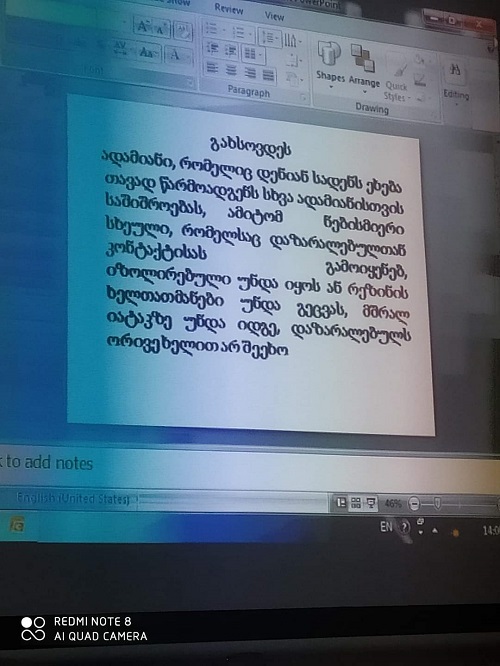 Review
View
Paragraph
Shapes Arrange Quick Styles
Drawing
Editing
გახსოვდეს
ადამიანი, რომელიც დენიან სადენს ეხება
თავად წარმოადგენს სხვა ადამიანისთვის
საშიშროებას, ამიტომ ნებისმიერი
სხეული, რომელსაც დაზარალებულთან
კონტაქტისას გამოიყენებ,
იზოლირებული უნდა იყოს ან რეზინის
ხელთათმანები უნდა გეცვას, მშრალ
იატაკზე უნდა იდგე, დაზარალებულს
ორივე ხელით არ შეეხო
to add notes
English (United States)
46%
EN
REDMI NOTE 8
AI QUAD CAMERA